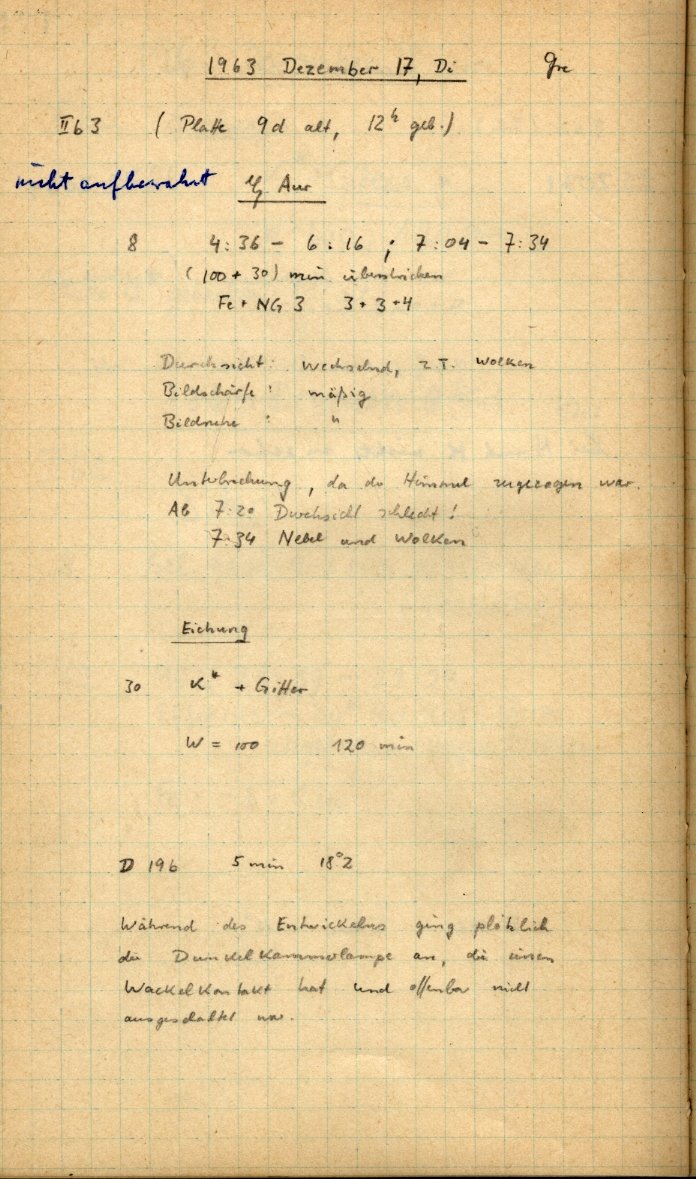 1963 Dezember 17, Di Gre
II b 3 ( Platte 9d alt, 12h geb.)
nicht aufbewahrt ζ Aur
8 4:36 - 6:16 ; 7:04 - 7:34
(100 + 30) min überstrichen
Fe + NG 3 3 + 3 + 4
Durchsicht : wechselnd, z.T. Wolken
Bildschärfe : mäßig
Bildruhe : "
Unterbrechung, da der Himmel zugezogen war.
Ab 7:20 Durchsicht schlecht !
7:34 Nebel und Wolken
Eichung
30 K* + Gitter
W = 100 120 min
D 196 5 min 18°2
Während des Entwickelns ging plötzlich
die Dunkelkammerlampe an, die einen
Wackelkontakt hat und offenbar nicht
ausgeschaltet war.